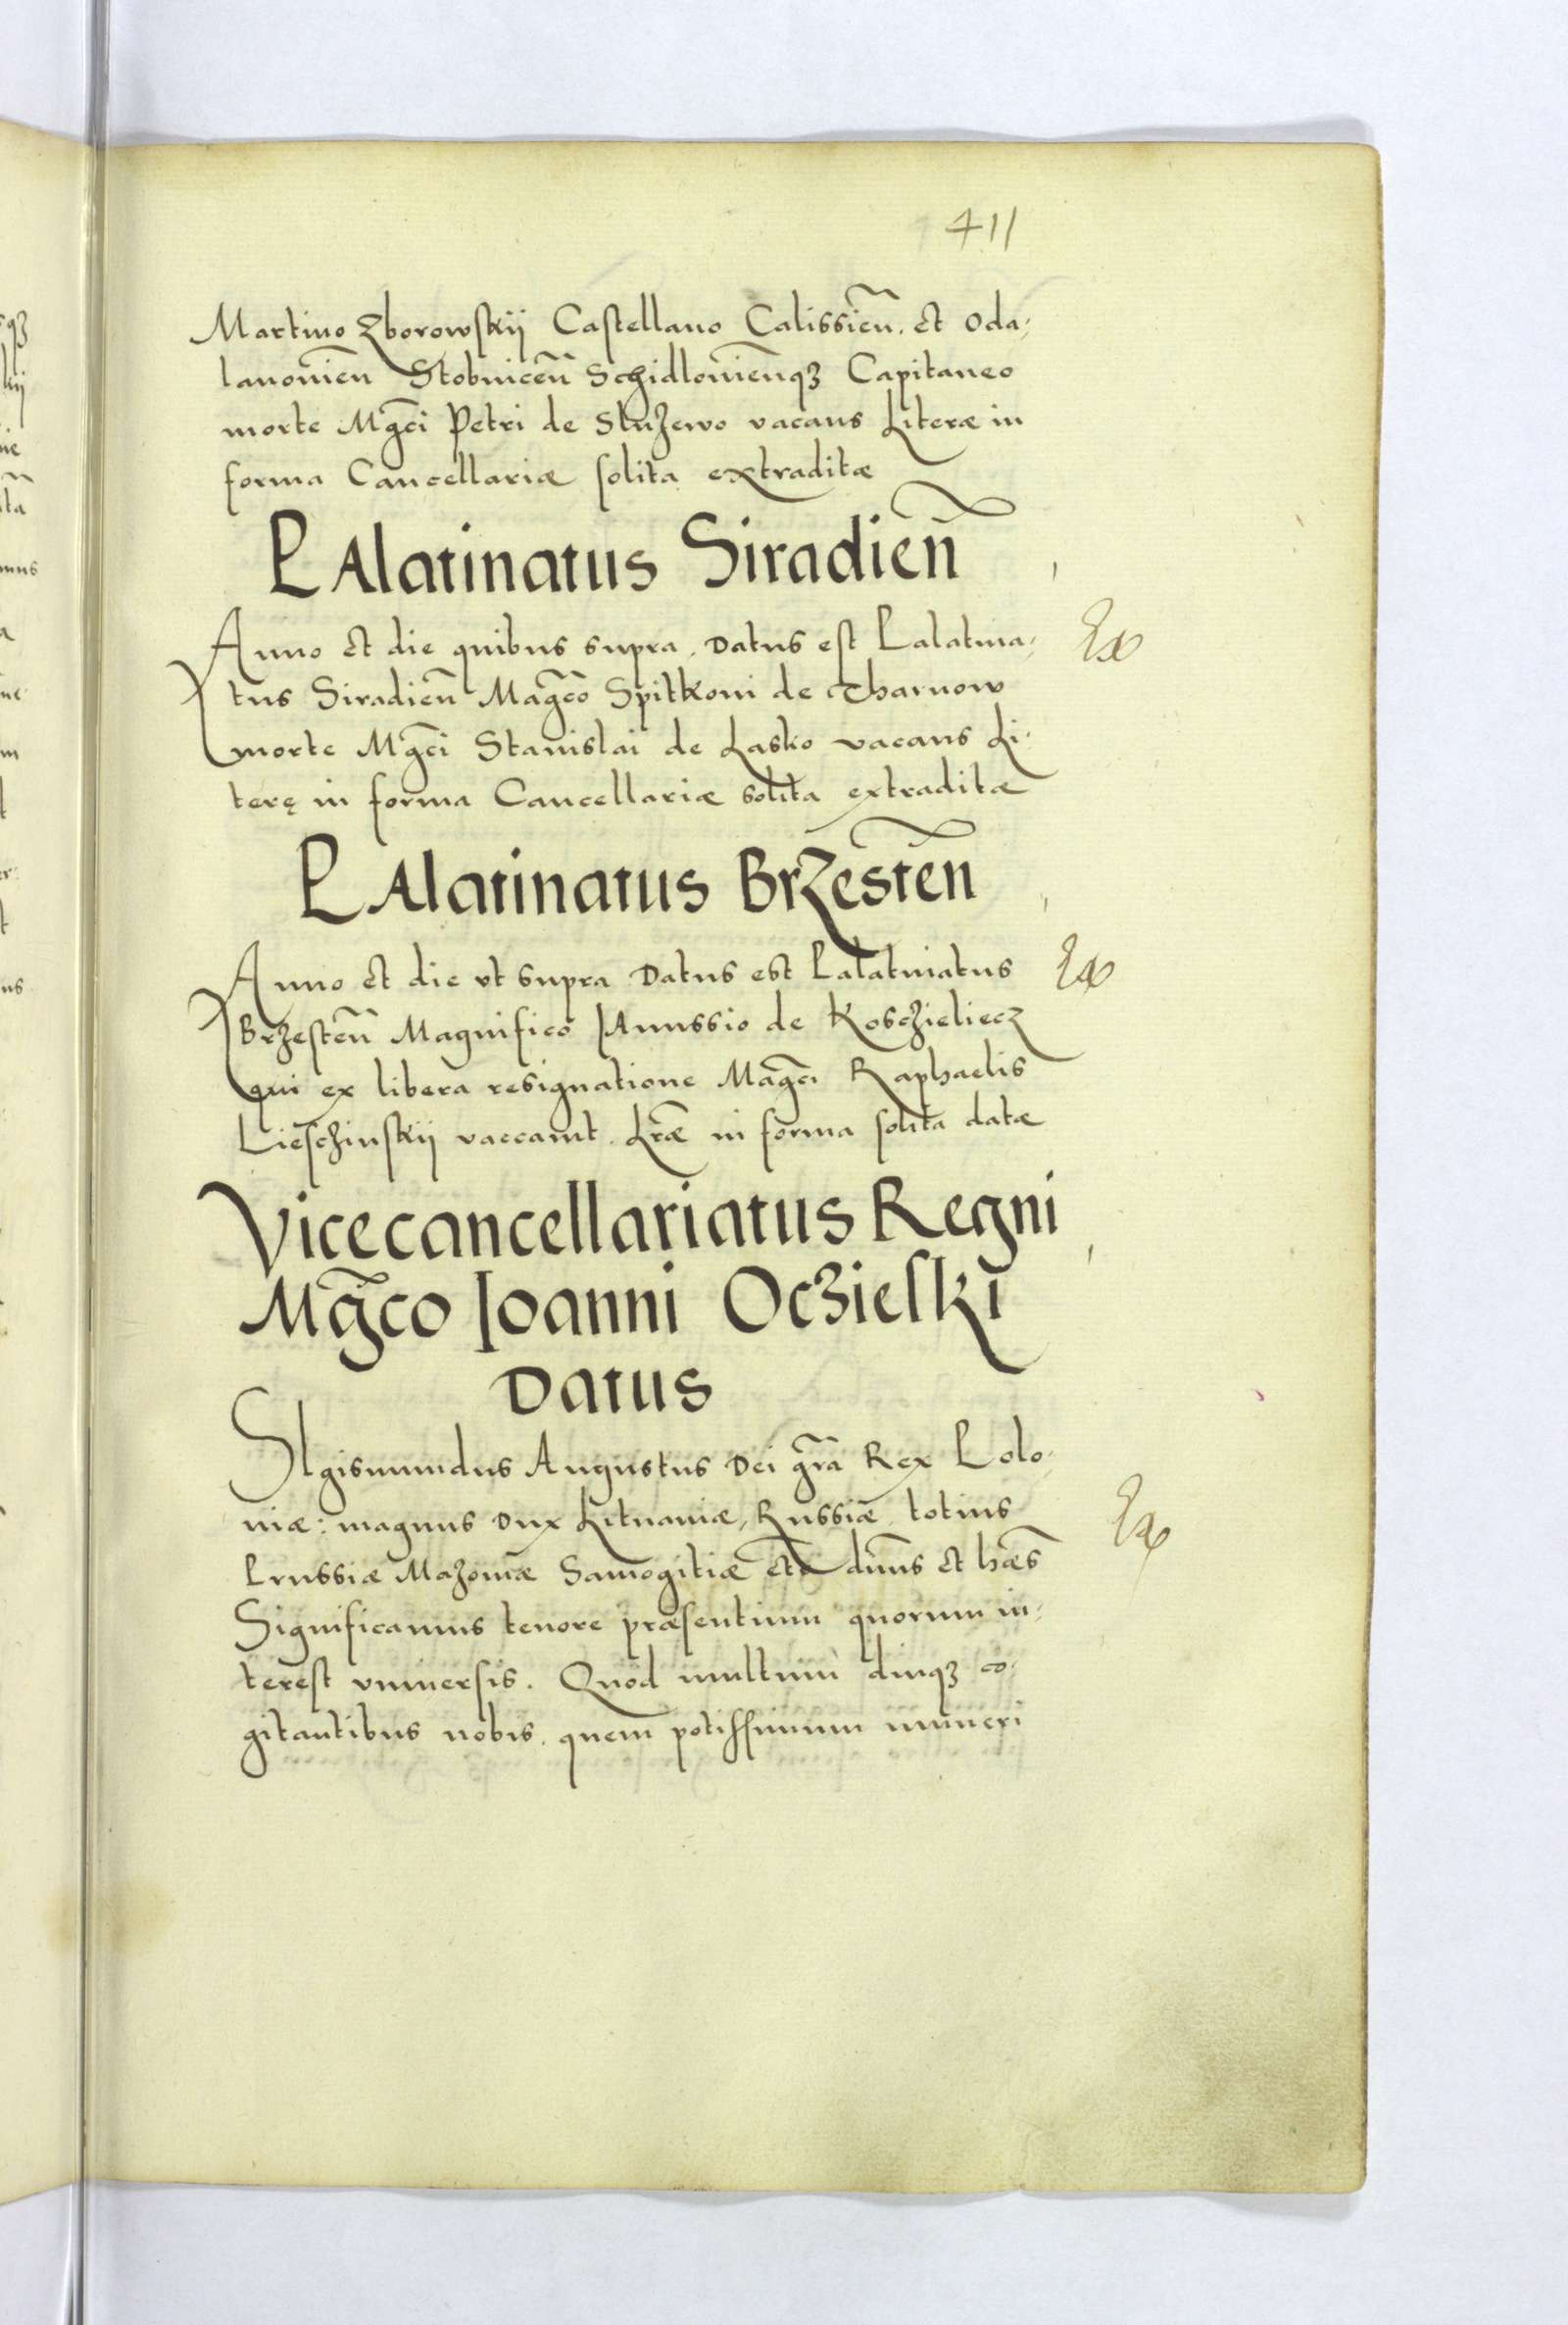 411
Martino Zborowskij Castellano Calissien̄. et Oda-
lanovien̄ Stobnicen̄ Schidlovien̄qȝ Capitaneo
morte Mgc̄i Petri de Sluzewo vacans Literæ in
forma Cancellariæ solita extraditæ
PAlatinatus Siradien̄
Anno et die quibus supra. Datus est Palatina-
tus Siradien̄ Magc̄o Spitkoni de Tharnow
morte Mgc̄i Stanislai de Lasko vacans Li-
terę in forma Cancellariæ solita extraditæ
PAlatinatus Brzesten̄
Anno et die vt supra Datus est Palatinatus
Brzesten̄ Magnifico IAnussio de Kosczieliecz
qui ex libera resignatione Magc̄i Raphaelis
Liesczinskij vaccavit. Lr̄æ in forma solita datæ
Vicecancellariatus Regni
Mgc̄o Ioanni Oczieski
Datus
SIgismundus Augustus Dei gr̄a Rex Polo-
niæ: magnus Dux Lituaniæ, Russiæ totius
Prussiæ Mazoviæ Samogitiæ etc̄ dn̄us et hæs̄
Significamus tenore præsentium quorum in-
terest vniversis. Quod multum diuqȝ co-
gitantibus nobis. quem potissimum muneri